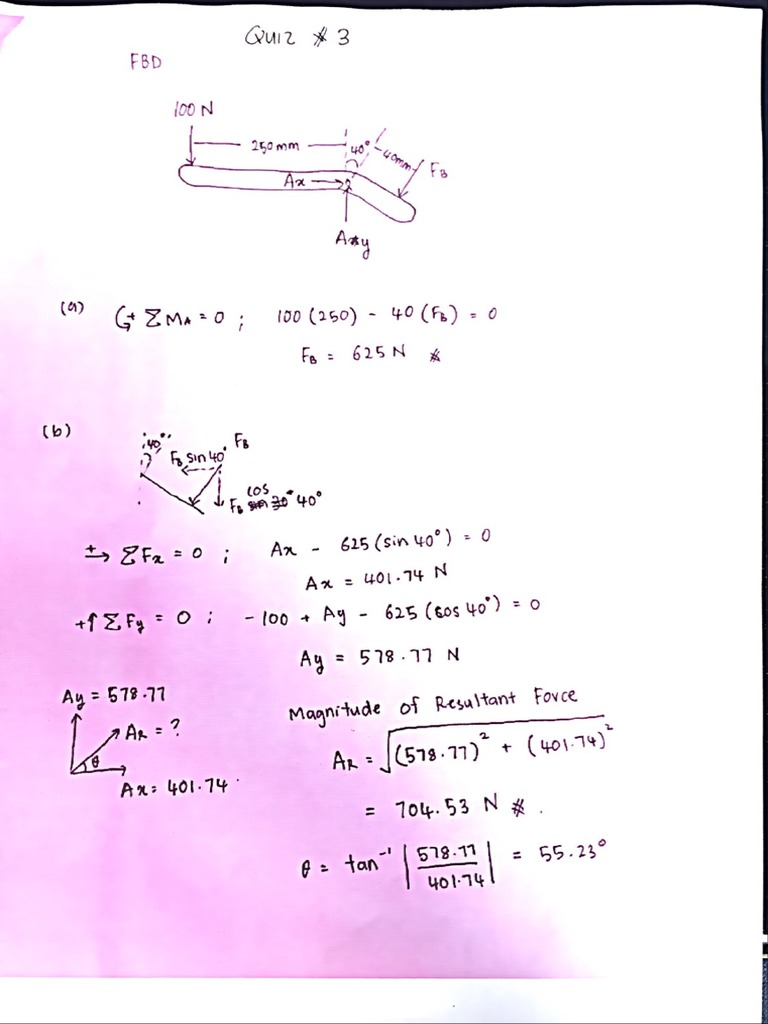 QUIZ # 3
FBD
100 N
250mm
40°
40mm
FB
Ax
Ay
(a) ↺+ ΣMA = 0 ; 100 (250) - 40 (FB) = 0
FB = 625 N *
(b)
40°
FB sin 40°
FB
FB cos 40°
+→ ΣFx = 0 ; Ax - 625 (sin 40°) = 0
Ax = 401.74 N
+↑ ΣFy = 0 ; - 100 + Ay - 625 (cos 40°) = 0
Ay = 578.77 N
Ay = 578.77
AR = ?
θ
Ax = 401.74
Magnitude of Resultant Force
AR = √(578.77)² + (401.74)²
= 704.53 N #.
θ = tan⁻¹ |578.77/401.74| = 55.23°